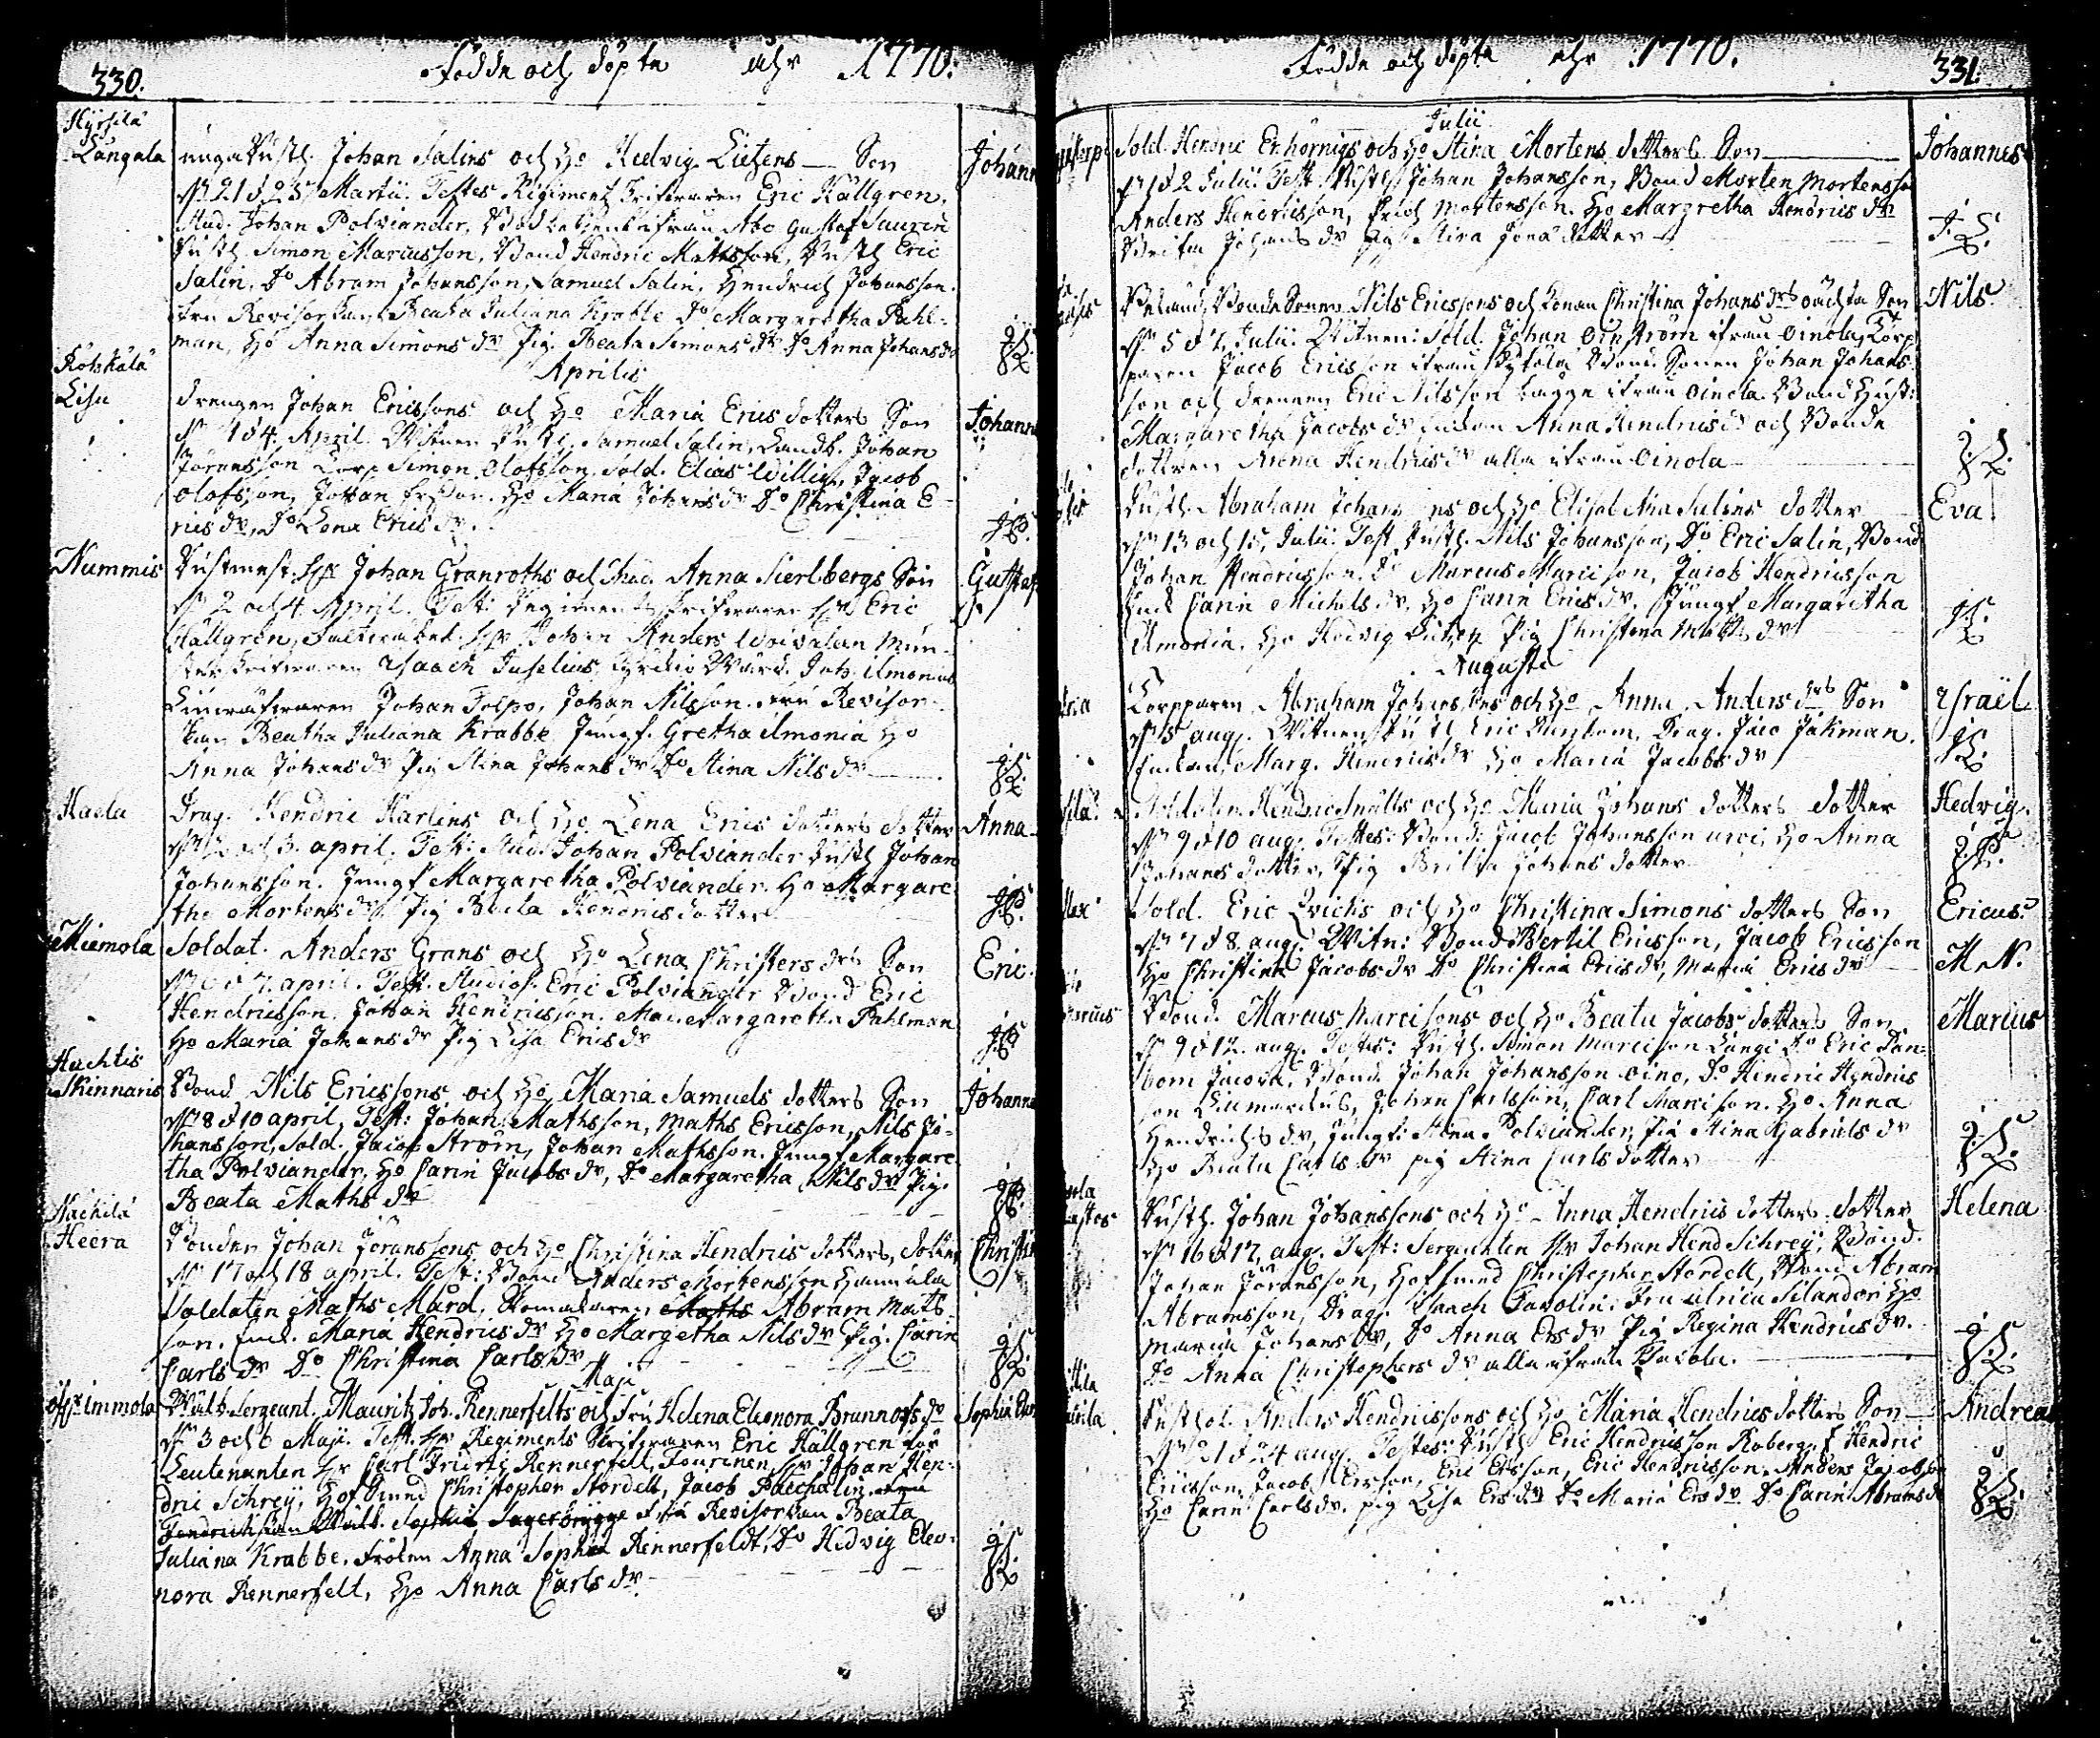 330.
Födde och döpta åhr 1770.
Hyrsilä
Långala
unga Rusth. Johan Salins och H:o Hedvig Lietzens Son
Johann
d. 21 d 25 Martii. Testes Regiments Skrifvaren Eric Hällgren,
Stud. Johan Polviander, ifrån Abo Gustaf Saurén
Rusth. Simon Marcusson, Bond Hendric Mathsson, Rusth Eric
Salin, D:o Abram Johansson, Samuel Salin, Hendrich Johansson.
Fru Revisorskan Beata Juliana Krabbe D:o Margaretha Pahl-
man, H:o Anna Simons dr Pig. Beata Simons dr D:o Anna Johans dr
Aprilis
Lisu
drengen Johan Ericssons och H:o Maria Erics dotters Son
Johann
d. 1 d 4. April. Witnen Rusth. Samuel Salin, Landb. Johan
Göransson Corp Simon Olofsson. Sold. Elias Willig, Jacob
Olofsson, Johan Ersson. H:o Maria Johans dr D:o Christina E-
rics dr, D:o Lena Erics dr.
Nummis
Rustmest. H:r Johan Granroths och Mad. Anna Sierlbergs Son
Gustaf
d. 2 och 4 April. Test: Regiments skrifvaren H:r Eric
Hällgren, H:r Johan Anders Mön-
ster skrifvaren Isaach Juselius, Wärd. Joh. Ilmonius
Johan Tolpo, Johan Nilsson. Fru Revisor-
skan Beatha Juliana Krabbe Jungf. Gretha Ilmonia H:o
Anna Johans dr Pig Stina Johans dr D:o Stina Nils dr
Haclu
Drag. Hendric Harlins och H:o Lena Erics dotters dotter
Anna
d. 2 och 3. april. Test: Stud. Johan Polviander Rusth Johan
Johansson. Jungf Margaretha Polviander. H:o Margare
tha Mortens dr, Pig Beata Hendrics dotter
Miemola
Soldat. Anders Grans och H:o Lena Christers drs Son
Eric
d. 6 d 7. april. Test. Studios. Eric Polviander Bond Eric
Hendricsson. Johan Hendricsson. Mad. Margaretha Pahlman
H:o Maria Johans dr Pig Lisa Erics dr
Huchtis
Skinnaris
Bond Nils Ericssons och H:o Maria Samuels dotters Son
Johanne
d. 8 d 10 april, Test: Johan Mathsson, Maths Ericsson, Nils Jo-
hansson, Sold. Jacob Ström, Johan Mathsson. Jungf Margare
tha Polviander, H:o Carin Jacobs dr, D:o Margaretha Nils dr Pig.
Beata Maths dr
Hachila
Heera
Bonden Johan Jöranssons och H:o Christina Hendrics dotters, dotter
Christi
d. 17 och 18 april. Test: Bond Anders Mortensson Hannula
Soldaten Maths Mård, Skomakaren Maths Abram Mats-
son, Enk. Maria Hendrics dr H:o Margetha Nils dr Pig. Carin
Carls dr D:o Christina Carls dr
Maji
Immola
Sergeant. Mauritz Joh. Rennerfelts och Fru Helena Eleonora Brunnous dr
Sophia
d. 3 och 6 Maji. Test. H:r Regiments Skrifvaren Eric Hällgren för
Leutenanten H:r Carl Rennerfelt, H:r Johan Hen-
dric Schrey, Christopher Stordell, Jacob Paschalin, Fru
Sophia Jagerbrygge Fru Revisorskan Beata
Juliana Krabbe. Fröken Anna Sophia Rennerfeldt, D:o Hedvig Eleo-
nora Rennerfelt, H:o Anna Carls dr
Födde och döpta åhr 1770.
331.
Julii
Sold. Hendric Enhörnigs och H:o Stina Mortens dotters Son
Johannes
d. 1 d 2 Julii. Test: Rusth. Johan Johansson, Bond Morten Mortensso
Anders Hendricsson, Erich Mortensson. H:o Margretha Hendrics dr
Brita Johans dr Pig Stina Jöns dotter
Bonde Sonen Nils Ericssons och Konan Christina Johans drs oächta Son
Nils
d. 5 d 7, Julii. Witnen: Sold. Johan Öinström ifrån Oinola, Torp
paren Jacob Ericsson ifrån Bond Sonen Johan Johans
son och drengen Eric Nilsson Lagge ifrån Oinola. Bond Hust:
Margaretha Jacobs dr Enkan Anna Hendrics dr och Bonde
dottren Anna Hendrics dr alla ifrån Oinola
Rusth. Abraham Johans ns och H:o Elisab Ana Salins dotter
Eva
d. 13 och 15, Julii. Test Rusth. Nils Johansson, D:o Eric Salin, Bond
Johan Hendricsson. D:o Marcus Marcison, Jacob Hendricsson
Enk Carin Michels dr, H:o Carin Erics dr. Jungf Margaritha
Ilmonia. H:o Hedvig Pig Christina Matts dr
Augusti
Torpparen Abraham Johans ns och H:o Anna Anders drs Son
Israël
d. 5 aug. Witnen Rusth. Eric Drag. Jaco Jakman.
Enkan, Marg. Hendrics dr H:o Maria Jacobs dr
Soldaten Hendric Smålts och H:o Maria Johans dotters dotter
Hedvig.
d. 9 d 10 aug. Testes: Bond: Jacob Johansson H:o Anna
Johans dotter, Pig Britha Johans dotter
Sold. Eric Qvicks och H:o Christina Simons dotters Son
Ericus
d. 7 d 8. aug. Witn: Bond Bertil Ericsson, Jacob Ericsson
M N.
H:o Christina Jacobs dr D:o Christina Erics dr, Maria Erics dr
Bond. Marcus Marcisons och H:o Beata Jacobs dotters Son
Marcus
d. 9 d 12. aug. Testes: Rusth. Simon Marcison Långi D:o Eric Pan-
bom Bond. Johan Johansson Oino, D:o Hendric Hendrics
son Johan Carlsson, Carl Marcison. H:o Anna
Hendrichs dr, Jungf: Anna Polviander, Pig Stina Gabriels dr
H:o Beata Carls dr pig Stina Carls dotter
Rusth. Johan Johanssons och H:o Anna Hendrics dotters dotter
Helena
d. 16 d 17, aug. Test: Sergeanten H:r Johan Hend Schrey, Bond.
Johan Jöransson, Christopher Stordell, Bond Abram
Abramsson, Drag. Isaach Favolin. Fru Ulrica Silander H:o
Maria Johans dr, D:o Anna Ers dr Pig Regina Hendrics dr.
D:o Anna Christophers dr alla ifrån Havola.
Rusthol. Anders Hendricssons och H:o Maria Hendrics dotters Son
Andrea
d. 21 d 24 aug. Testes: Rusth Eric Hendricsson Hendric
Ericsson, Jacob Ersson, Eric Ersson, Eric Hendricsson, Anders Jacobson
H:o Carin Carls dr. pig Lisa Ers dr D:o Maria Ers dr. D:o Carin Abrams dr